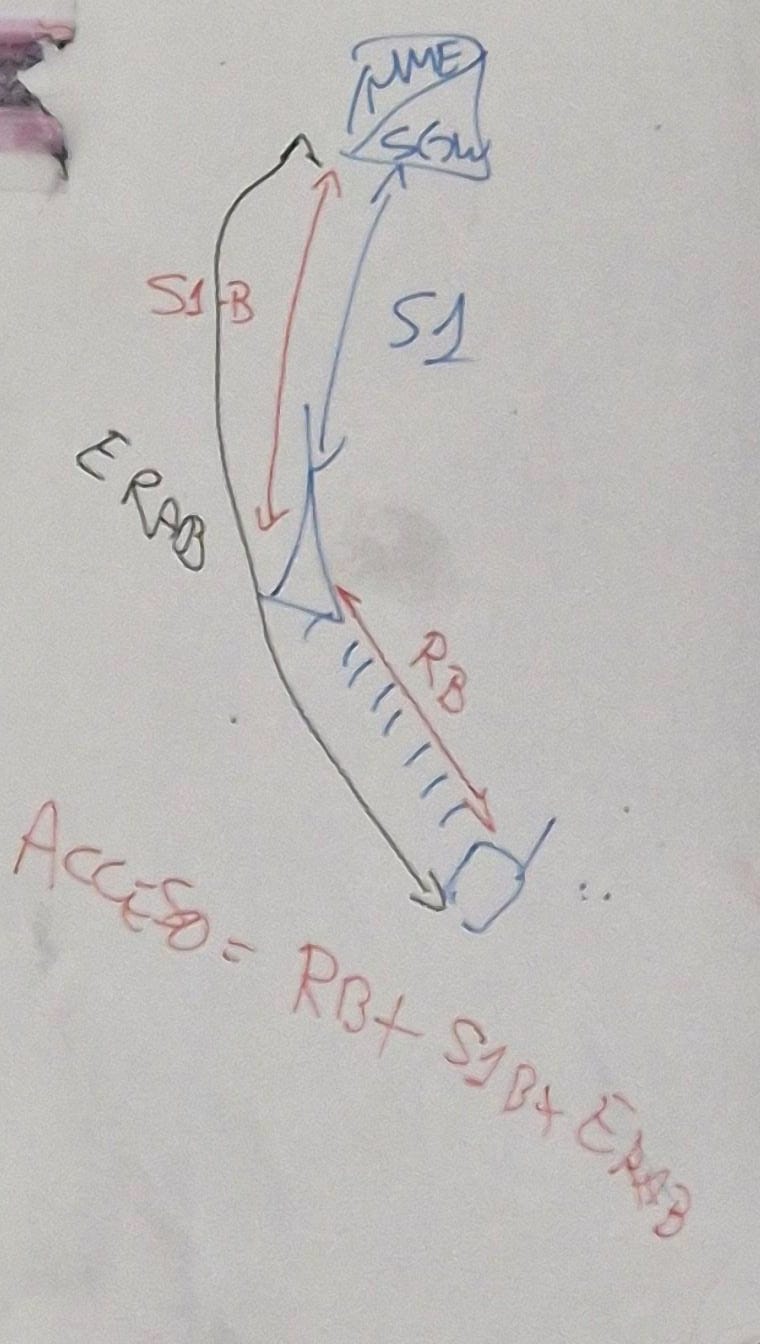 MME
SGW
S1-B
S1
ERAB
RB
ACCESO = RB + S1B + ERAB